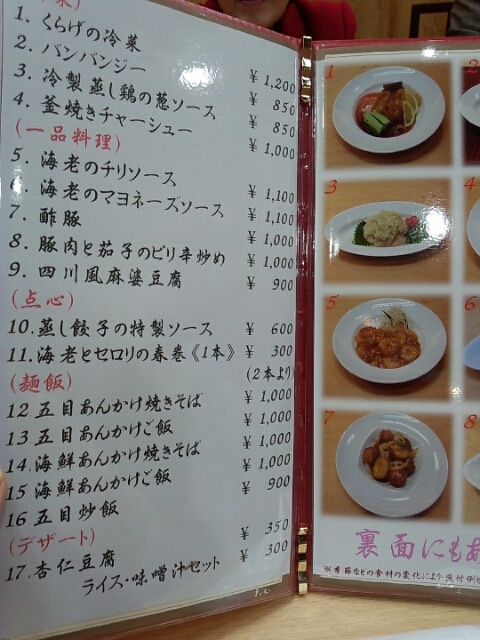 1. くらげの冷菜 ¥1,200
2. バンバンジー ¥ 850
3. 冷製蒸し鶏の葱ソース ¥ 850
4. 釜焼きチャーシュー ¥1,000
(一品料理)
5. 海老のチリソース ¥1,100
6. 海老のマヨネーズソース ¥1,100
7. 酢豚 ¥1,000
8. 豚肉と茄子のピリ辛炒め ¥1,000
9. 四川風麻婆豆腐 ¥ 900
(点心)
10.蒸し餃子の特製ソース ¥ 600
11.海老とセロリの春巻《1本》 ¥ 300
(2本より)
(麺飯)
12 五目あんかけ焼きそば ¥1,000
13 五目あんかけご飯 ¥1,000
14.海鮮あんかけ焼きそば ¥1,000
15 海鮮あんかけご飯 ¥1,000
16 五目炒飯 ¥ 900
(デザート)
17.杏仁豆腐 ¥ 350
ライス・味噌汁セット ¥ 300
1
2
3
4
5
6
7
8
裏面にもあ
※季節などの食材の変化により